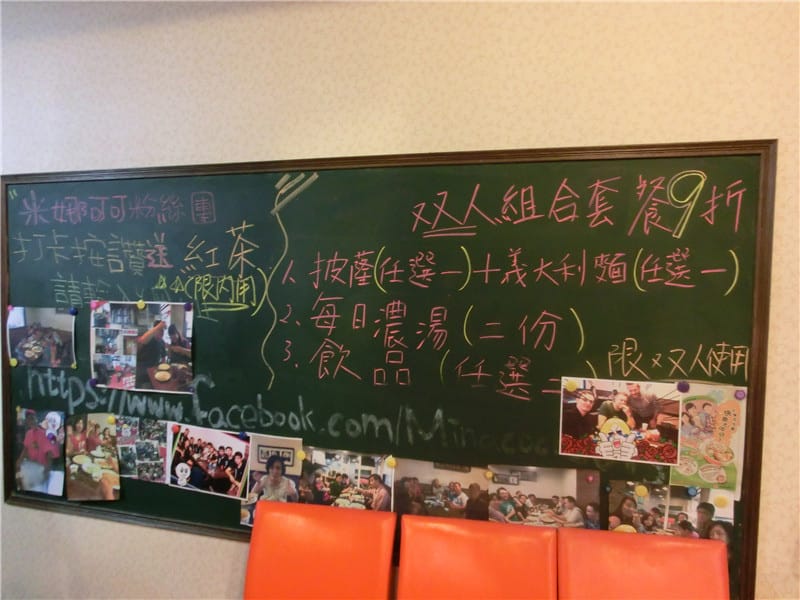 米娜可可粉絲團
打卡按讚送紅茶
請輸入
(限內用)
双双人組合套餐9折
1. 披薩(任選一)十義大利麵(任選一)
2. 每日濃湯(二份)
3. 飲品(任選二)
限双人使用
https://www.facebook.com/Minacoco